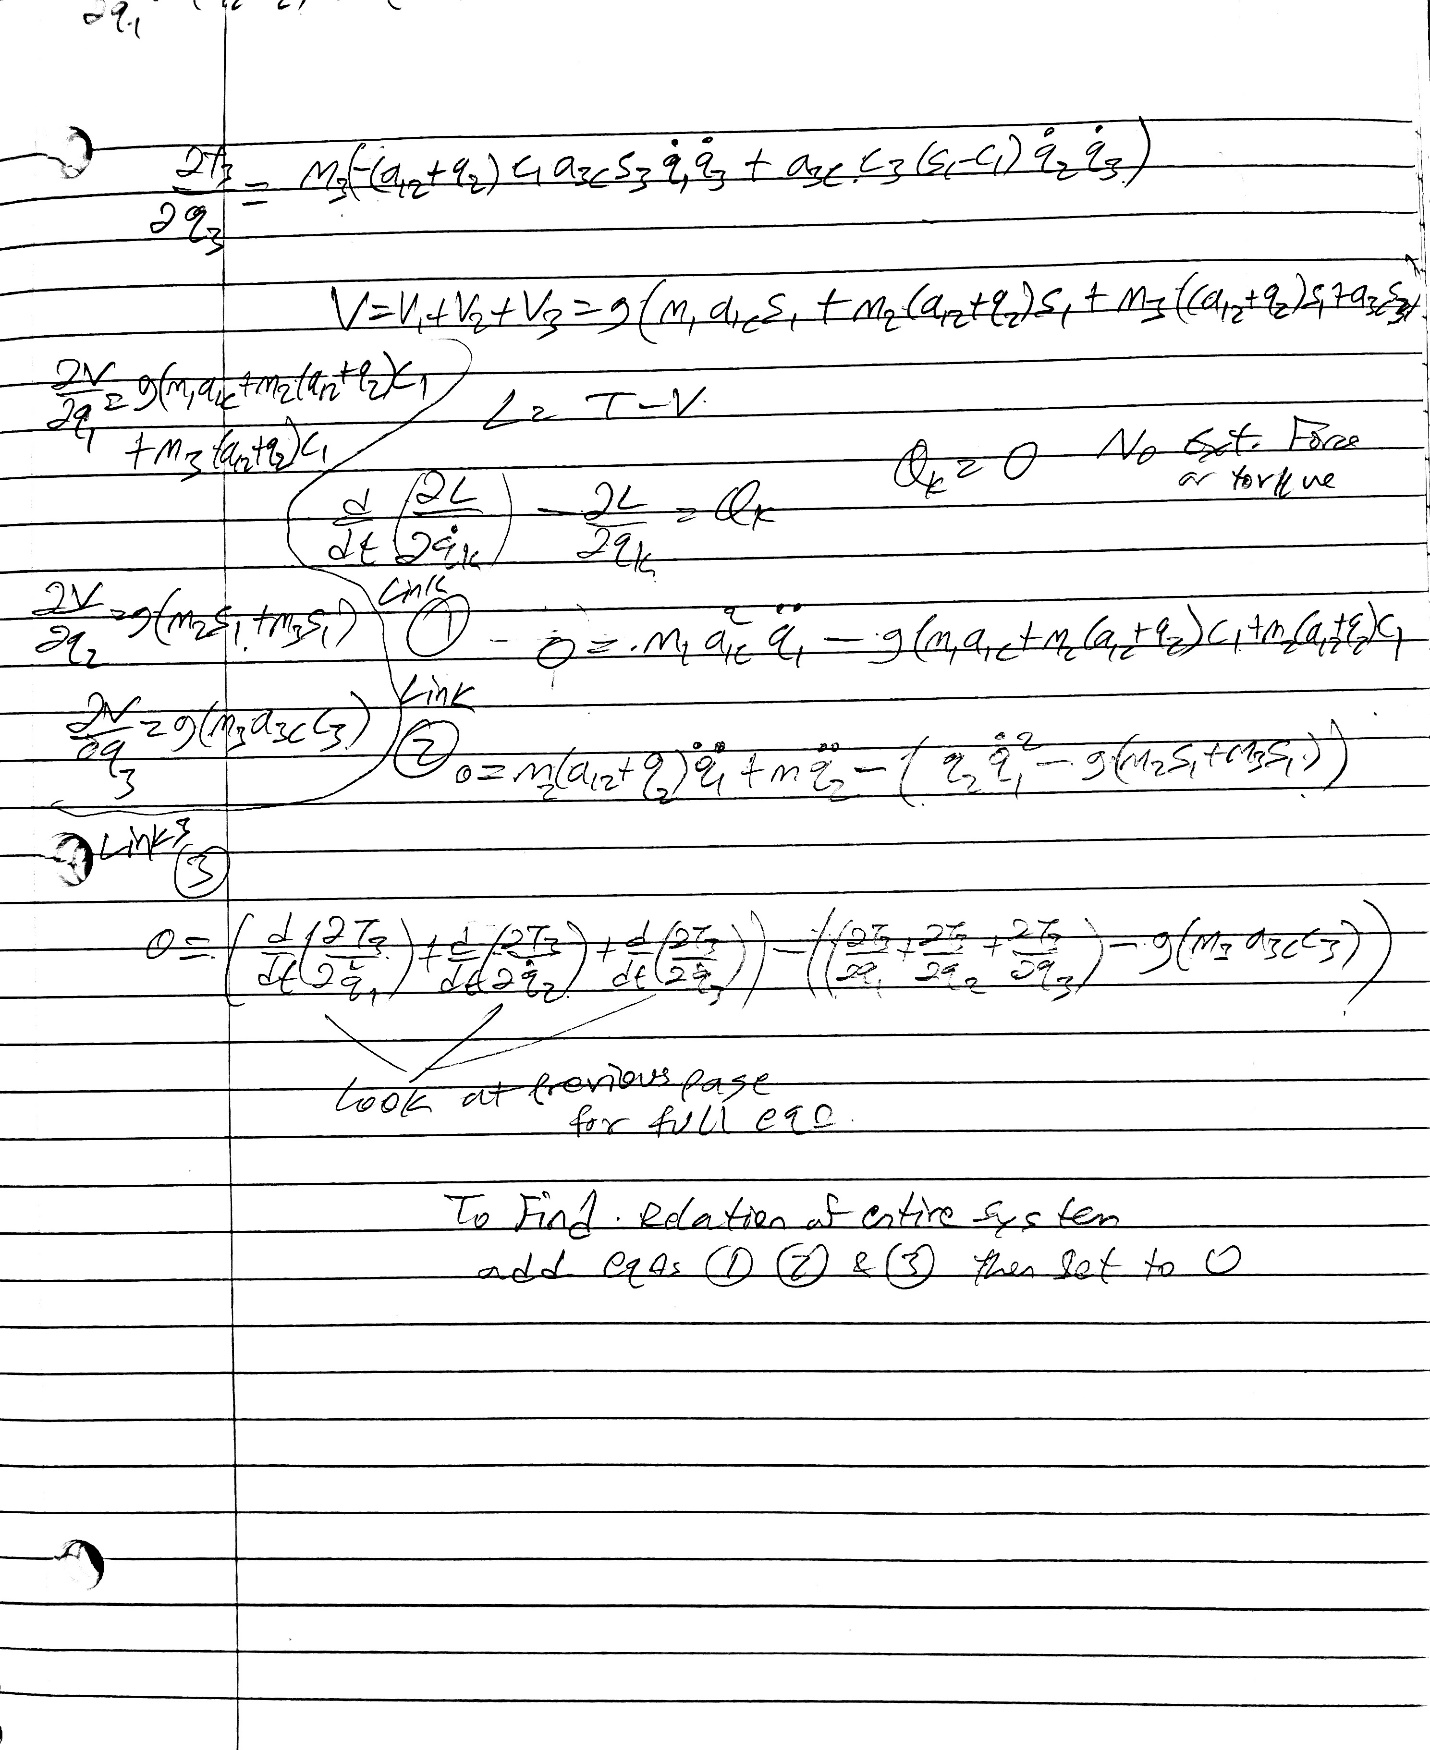 ∂q₁
∂T₃/∂q₃ = M₃(-(a₁₂+q₂) c₁ a₃c s₃ q̇₁ q̇₃ + a₃c c₃ (s₁-c₁) q̇₂ q̇₃)
V=V₁+V₂+V₃ = g(m₁ a₁c s₁ + m₂(a₁₂+q₂)s₁ + m₃((a₁₂+q₂)s₁+a₃c s₃)
∂V/∂q₁ = g(m₁a₁c+m₂(a₁₂+q₂)c₁
+ m₃(a₁₂+q₂)c₁
L = T-V
Q_k = 0 No Ext. Force
or torque
d/dt (∂L/∂q̇_k) - ∂L/∂q_k = Q_k
∂V/∂q₂ = g(m₂s₁+m₃s₁)
Link
① 0 = m₁ a₁c² q̈₁ - g(m₁a₁c+m₂(a₁₂+q₂)c₁+m₂(a₁₂+q₂)c₁
∂V/∂q₃ = g(m₃a₃c c₃)
Link
② 0 = m₂(a₁₂+q₂)q̈₁ + m q̈₂ - (q₂ q̇₁² - g(m₂s₁+m₃s₁))
Link 3
③
0 = (d/dt(∂T₃/∂q̇₁) + d/dt(∂T₃/∂q̇₂) + d/dt(∂T₃/∂q̇₃)) - ((∂T₃/∂q₁ + ∂T₃/∂q₂ + ∂T₃/∂q₃) - g(m₃ a₃c c₃))
Look at previous page
for full eqn.
To Find Relation of entire system
add eqns ① ② & ③ then set to 0